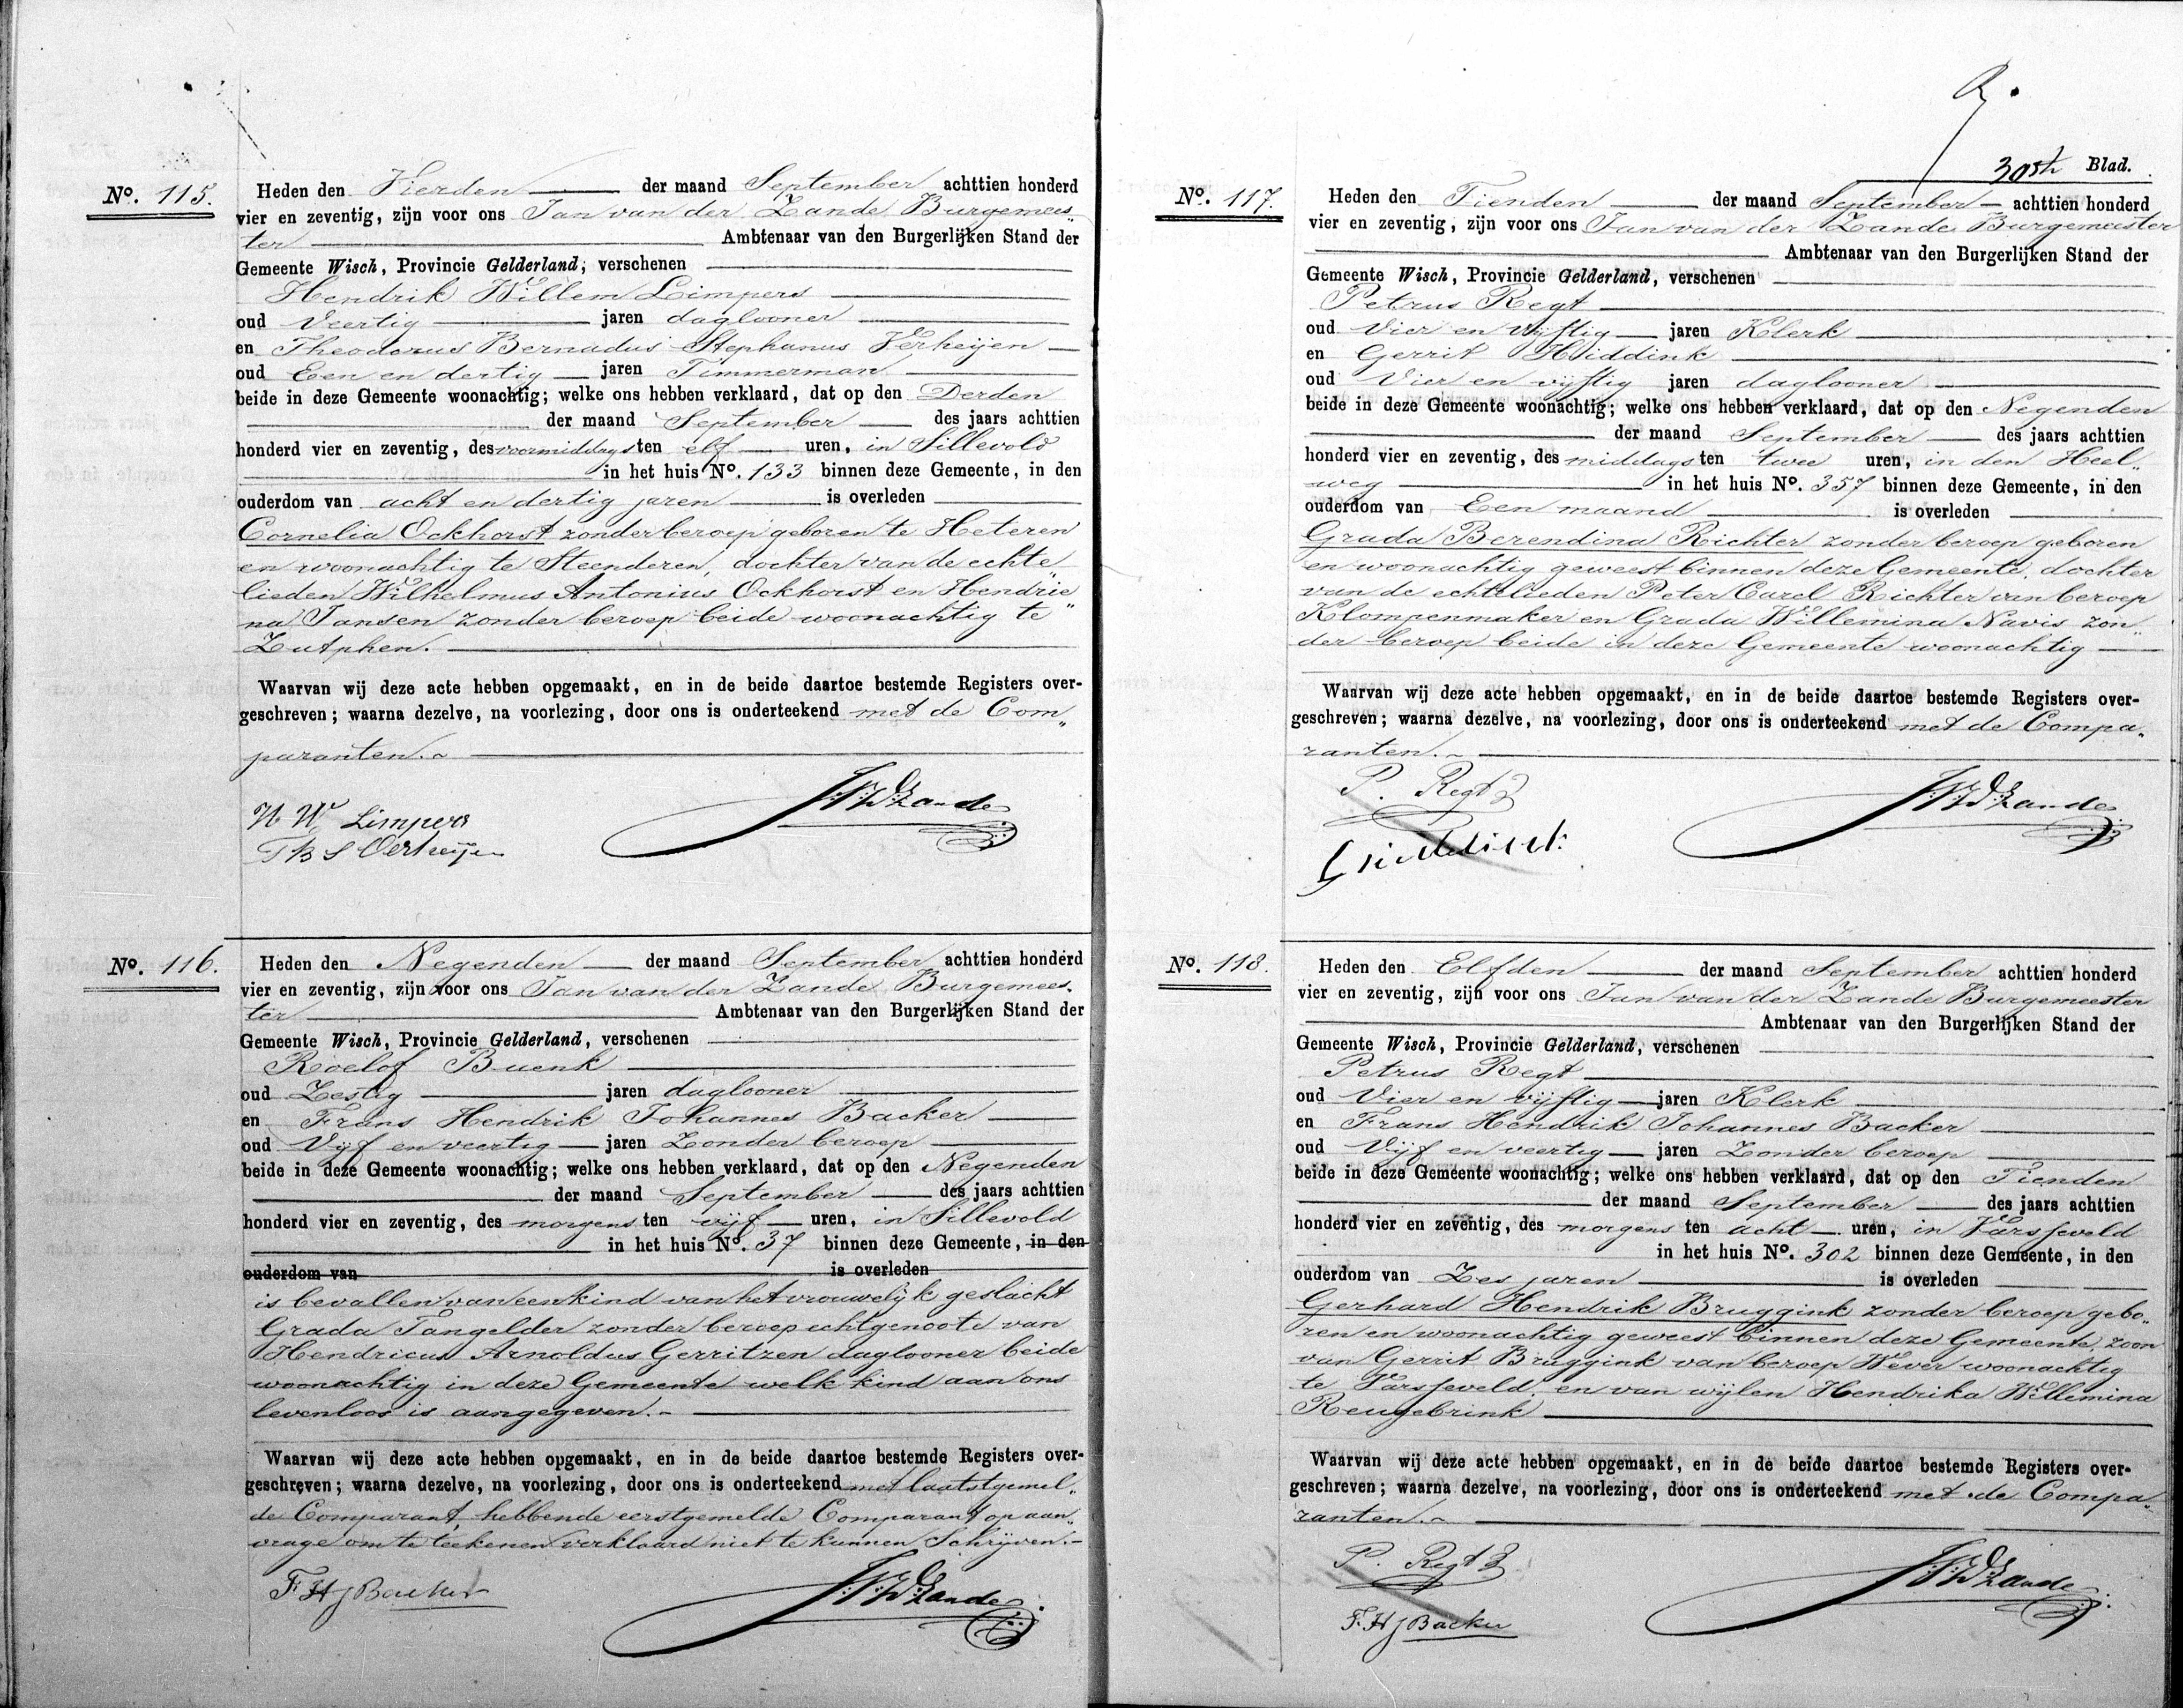 No. 115.
Heden den Vierden der maand September achttien honderd
vier en zeventig, zijn voor ons Jan van der Zande Burgemees„
ter Ambtenaar van den Burgerlijken Stand der
Gemeente Wisch, Provincie Gelderland, verschenen
Hendrik Willem Limpers
oud Veertig jaren daglooner
en Theodorus Bernadus Stephanus Verheijen
oud Een en dertig jaren Timmerman
beide in deze Gemeente woonachtig; welke ons hebben verklaard, dat op den Derden
der maand September des jaars achttien
honderd vier en zeventig, des voormiddags ten elf uren, in Sillevold
in het huis No. 133 binnen deze Gemeente, in den
ouderdom van acht en dertig jaren is overleden
Cornelia Ockhorst zonder beroep geboren te Heteren
en woonachtig te Steenderen, dochter van de echte„
lieden Wilhelmus Antonius Ockhorst en Hendrie„
na Jansen zonder beroep beide woonachtig te
Zutphen.
Waarvan wij deze acte hebben opgemaakt, en in de beide daartoe bestemde Registers over-
geschreven; waarna dezelve, na voorlezing, door ons is onderteekend met de Com„
paranten.
H W Limpers
T B S Verheijen
J. V. D. Zande
No. 116.
Heden den Negenden der maand September achttien honderd
vier en zeventig, zijn voor ons Jan van der Zande Burgemees„
ter Ambtenaar van den Burgerlijken Stand der
Gemeente Wisch, Provincie Gelderland, verschenen
Roelof Buenk
oud Zestig jaren daglooner
en Frans Hendrik Johannes Backer
oud Vijf en veertig jaren Zonder beroep
beide in deze Gemeente woonachtig; welke ons hebben verklaard, dat op den Negenden
der maand September des jaars achttien
honderd vier en zeventig, des morgens ten vijf uren, in Sillevold
in het huis No. 37 binnen deze Gemeente, in den
ouderdom van is overleden
is bevallen van een kind van het vrouwelijk geslacht
Grada Tangelder zonder beroep echtgenoote van
Hendricus Arnoldus Gerritzen daglooner beide
woonachtig in deze Gemeente welk kind aan ons
levenloos is aangegeven.
Waarvan wij deze acte hebben opgemaakt, en in de beide daartoe bestemde Registers over-
geschreven; waarna dezelve, na voorlezing, door ons is onderteekend met laatstgemel„
de Comparant, hebbende eerstgemelde Comparant op aan„
vrage om te teekenen verklaard niet te kunnen Schrijven.
F H J Backer
J. V. D. Zande
30ste Blad.
No. 117.
Heden den Tienden der maand September achttien honderd
vier en zeventig, zijn voor ons Jan van der Zande Burgemeester
Ambtenaar van den Burgerlijken Stand der
Gemeente Wisch, Provincie Gelderland, verschenen
Petrus Regt
oud Vier en vijftig jaren Klerk
en Gerrit Hiddink
oud Vier en vijftig jaren daglooner
beide in deze Gemeente woonachtig; welke ons hebben verklaard, dat op den Negenden
der maand September des jaars achttien
honderd vier en zeventig, des middags ten twee uren, in den Heel„
weg in het huis No. 357 binnen deze Gemeente, in den
ouderdom van Een maand is overleden
Grada Berendina Richter zonder beroep geboren
en woonachtig geweest binnen deze Gemeente, dochter
van de echtelieden Peter Carel Richter van beroep
Klompenmaker en Grada Willemina Navis zon„
der beroep beide in deze Gemeente woonachtig
Waarvan wij deze acte hebben opgemaakt, en in de beide daartoe bestemde Registers over-
geschreven; waarna dezelve, na voorlezing, door ons is onderteekend met de Compa„
ranten.
P. Regt
G Hiddink
J. V. D. Zande
No. 118.
Heden den Elfden der maand September achttien honderd
vier en zeventig, zijn voor ons Jan van der Zande Burgemeester
Ambtenaar van den Burgerlijken Stand der
Gemeente Wisch, Provincie Gelderland, verschenen
Petrus Regt
oud Vier en vijftig jaren Klerk
en Frans Hendrik Johannes Backer
oud Vijf en veertig jaren Zonder beroep
beide in deze Gemeente woonachtig; welke ons hebben verklaard, dat op den Tienden
der maand September des jaars achttien
honderd vier en zeventig, des morgens ten acht uren, in Varsseveld
in het huis No. 302 binnen deze Gemeente, in den
ouderdom van Zes jaren is overleden
Gerhard Hendrik Bruggink zonder beroep gebo„
ren en woonachtig geweest binnen deze Gemeente, zoon
van Gerrit Bruggink van beroep Wever woonachtig
te Varsseveld, en van wijlen Hendrika Willemina
Reugebrink
Waarvan wij deze acte hebben opgemaakt, en in de beide daartoe bestemde Registers over-
geschreven; waarna dezelve, na voorlezing, door ons is onderteekend met de Compa„
ranten.
P. Regt
F. H J Backer
J. V. D. Zande